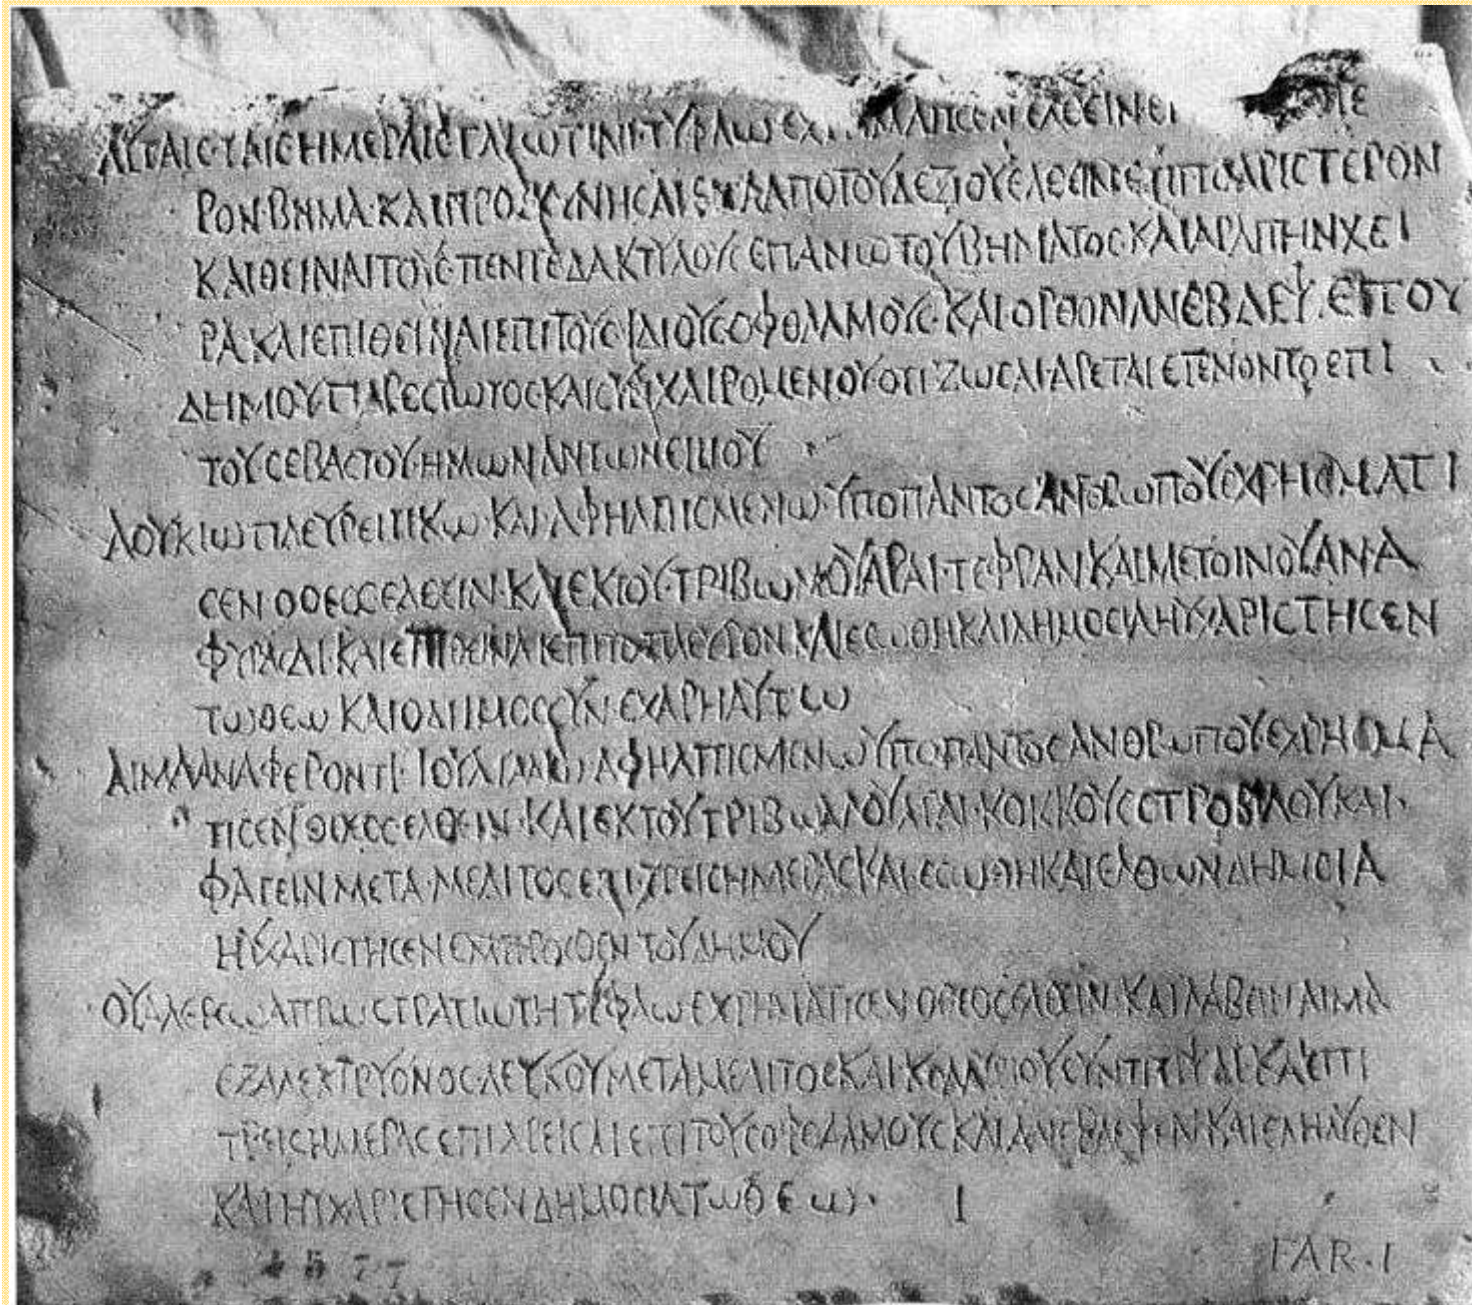 ΑΥΤΑΙϹ·ΤΑΙϹΗΜΕΡΑΙϹΓΑΙωΤΙΝΙ·ΤΥΦΛωΕΧΡΗΜΑΤΙϹΕΝΕΛΘΕΙΝΕΠ ΙΕ
ΡΟΝ·ΒΗΜΑ·ΚΑΙΠΡΟΣΚΥΝΗϹΑΙ ΑΠΟΤΟΥΔΕΞΙΟΥΕΛΘΕΙΝΕΠΙΤΟΑΡΙϹΤΕΡΟΝ
ΚΑΙΘΕΙΝΑΙΤΟΥϹΠΕΝΤΕΔΑΚΤΥΛΟΥϹΕΠΑΝωΤΟΥΒΗΜΑΤΟϹ·ΚΑΙΑΡΑΙΤΗΝΧΕΙ
ΡΑ·ΚΑΙΕΠΙΘΕΙΝΑΙΕΠΙΤΟΥϹΙΔΙΟΥϹΟΦΘΑΛΜΟΥϹ·ΚΑΙΟΡΘΟΝΑΝΕΒΛΕΨΕΤΟΥ
ΔΗΜΟΥΠΑΡΕϹΤωΤΟϹΚΑΙϹΥΝΧΑΙΡΟΜΕΝΟΥΟΤΙΖωϹΑΙΑΡΕΤΑΙΕΓΕΝΟΝΤΟΕΠΙ
ΤΟΥϹΕΒΑϹΤΟΥ·ΗΜωΝΑΝΤωΝΕΙΝΟΥ
ΛΟΥΚΙωΠΛΕΥΡΕΙΤΙΚω·ΚΑΙΑΦΗΛΠΙϹΜΕΝω·ΥΠΟΠΑΝΤΟϹΑΝΘΡωΠΟΥΕΧΡΗϹΜΑΤΙ
ϹΕΝΟΘΕΟϹΕΛΘΕΙΝ·ΚΑΙΕΚΤΟΥ·ΤΡΙΒωΜΟΥΑΡΑΙ·ΤΕΦΡΑΝΚΑΙΜΕΤΟΙΝΟΥΑΝ·Α
ΦΥΡΑϹΑΙ·ΚΑΙΕΠΙΘΕΙΝΑΙΕΠΙΤΟΠΛΕΥΡΟΝΚΑΙΕϹωΘΗΚΑΙΔΗΜΟϹΙΑΗΥΧΑΡΙϹΤΗϹΕΝ
ΤωΘΕωΚΑΙΟΔΗΜΟϹϹΥΝΕΧΑΡΗΑΥΤω
ΑΙΜΑΑΝΑΦΕΡΟΝΤΙ·ΙΟΥΛΙΑΝωΑΦΗΛΠΙϹΜΕΝωΥΠΟΠΑΝΤΟϹΑΝΘΡωΠΟΥΕΧΡΗϹΜΑ
ΤΙϹΕΝΟΘΕΟϹΕΛΘΕΙΝ·ΚΑΙΕΚΤΟΥΤΡΙΒωΜΟΥΑΡΑΙ·ΚΟΚΚΟΥϹϹΤΡΟΒΙΛΟΥΚΑΙ·
ΦΑΓΕΙΝΜΕΤΑ·ΜΕΛΙΤΟϹΕΠΙ·ΤΡΕΙϹΗΜΕΡΑϹΚΑΙ·ΕϹωΘΗΚΑΙΕΛΘωΝΔΗΜΟϹΙΑ
ΗΥΧΑΡΙϹΤΗϹΕΝΕΜΠΡΟϹΘΕΝΤΟΥΔΗΜΟΥ
ΟΥΑΛΕΡΙωΑΠΡωϹΤΡΑΤΙωΤΗΤΥΦΛωΕΧΡΗΜΑΤΙϹΕΝΟΘΕΟϹΕΛΘΕΙΝ·ΚΑΙΛΑΒΕΙΝΑΙΜΑ
ΕΞΑΛΕΚΤΡΥΟΝΟϹΛΕΥΚΟΥΜΕΤΑΜΕΛΙΤΟϹΚΑΙΚΟΛΛΥΡΙΟΥϹΥΝΤΡΙΨΑΙΚΑΙΕΠΙ
ΤΡΕΙϹΗΜΕΡΑϹΕΠΙΧΡΕΙϹΑΙΕΠΙΤΟΥϹΟΦΘΑΛΜΟΥϹΚΑΙΑΝΕΒΛΕΨΕΝ·ΚΑΙΕΛΗΛΥΘΕΝ
ΚΑΙΗΥΧΑΡΙϹΤΗϹΕΝΔΗΜΟϹΙΑΤωΘΕω· I
4577
FAR·I